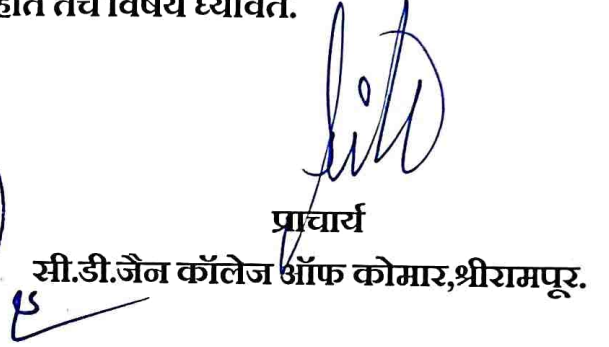 होते तेच विषय घ्यावेत.
प्राचार्य
सी.डी.जैन कॉलेज ऑफ कोमार,श्रीरामपूर.